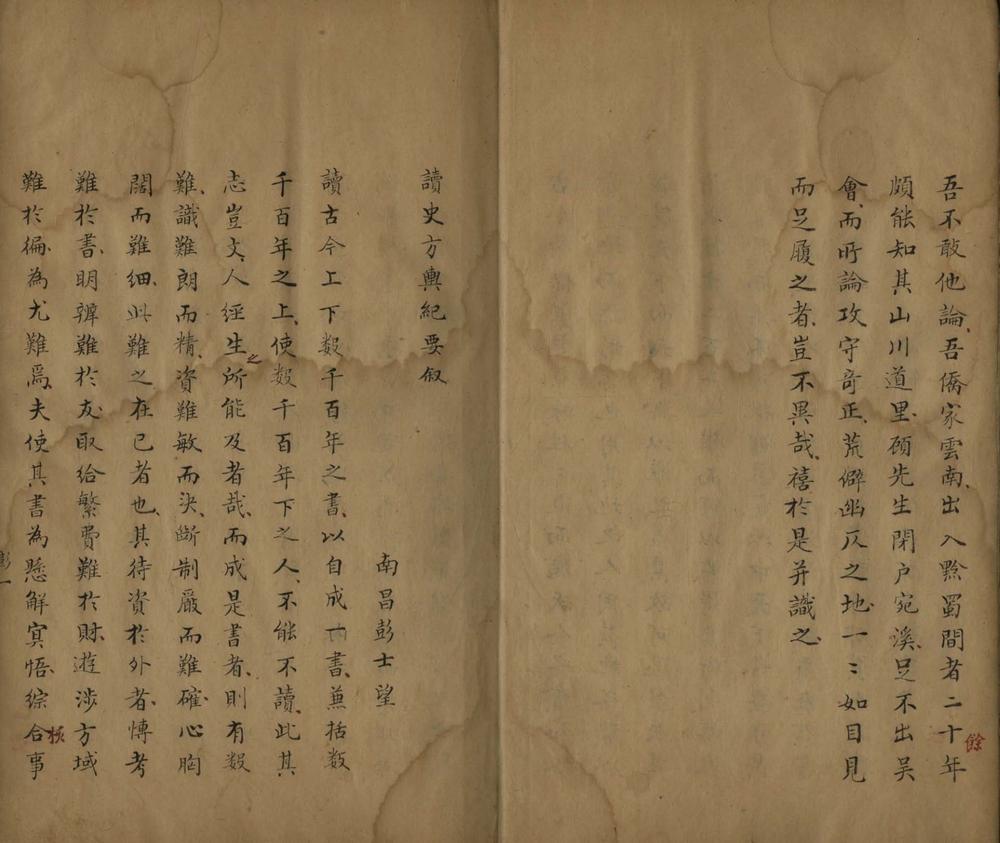 吾不敢他論吾僑家雲南出入黔蜀間者二十年
餘
頗能知其山川道里顧先生閉户宛溪足不出吴
會而所論攻守竒正荒僻幽仄之地一〻如目見
而足履之者豈不異哉禧於是并識之
讀史方輿紀要叙
南昌彭士望
讀古今上下数千百年之書以自成一書兼括数
千百年之上使数千百年下之人不能不讀此其
志豈文人經生所能及者哉而成是書者則有数
之
難識難朗而精資難敏而決斷制嚴而難確心胸
闊而難細此難之在已者也其待資於外者慱考
難於書明辨難於友取給繁費難於財遊涉方域
難於徧為尤難焉夫使其書為懸解冥悟綜合事
核
彭一